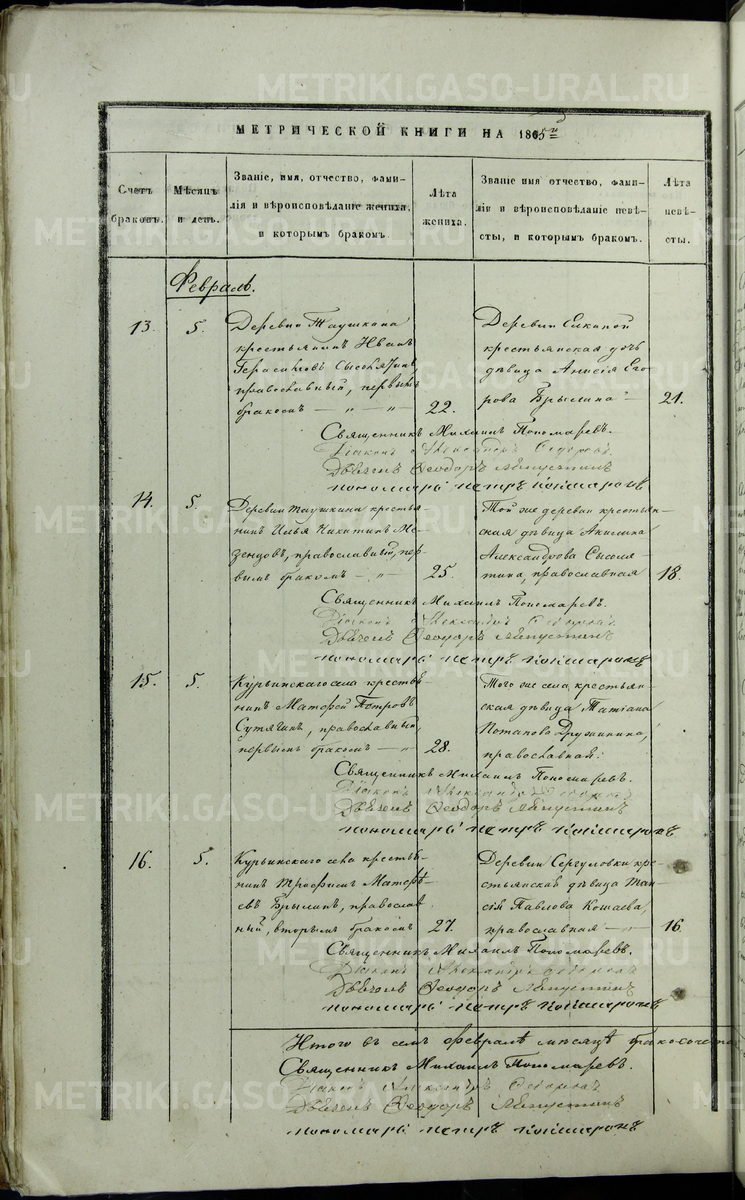 МЕТРИЧЕСКОЙ КНИГИ НА 1865й
Счетъ браковъ.
Мѣсяцъ и день.
Званіе, имя, отчество, фами-
лія и вѣроисповѣданіе жениха,
и которымъ бракомъ.
Лѣта жениха.
Званіе имя отчество, фами-
лія и вѣроисповѣданіе невѣ-
сты, и которымъ бракомъ.
Лѣта невѣ-
сты.
Февраль.
13. 5. Деревни Таушкана
крестьянинъ Иванъ
Герасимовъ Сысолятинъ,
православный, первымъ
бракомъ — „ — „ — 22.
Деревни Елкиной
крестьянская дочь
дѣвица Анисія Его-
рова Брылина — 21.
Священникъ Михаилъ Пономаревъ.
Діаконъ Александръ
Дьячекъ Ѳеодоръ Ляпустинъ
пономарь Петръ
14. 5. Деревни Таушкана кресть-
нинъ Илья Никитинъ Ме-
зенцовъ, православный, пер-
вымъ бракомъ — „ — 25.
Той же деревни крестьян-
ская дѣвица Акилина
Александрова Сысоля-
тина, православная 18.
Священникъ Михаилъ Пономаревъ.
Діаконъ Александръ
Дьячекъ Ѳеодоръ Ляпустинъ
пономарь Петръ
15. 5. Курьинскаго села кресть-
нинъ Матѳей Петровъ
Сутягинъ, православный,
первымъ бракомъ — „ 28.
Того же села крестьян-
ская дѣвица Татіана
Потапова Дружинина,
православная.
Священникъ Михаилъ Пономаревъ.
Діаконъ Александръ
Дьячекъ Ѳеодоръ Ляпустинъ
пономарь Петръ
16. 5. Курьинскаго села кресть-
нинъ Трофимъ Матѳѣ-
евъ Брылинъ, православ
ный, вторымъ бракомъ 27.
Деревни Сергуловки кре-
стьянская дѣвица Таи-
сія Павлова Кошаева,
православная — „ — 16.
Священникъ Михаилъ Пономаревъ.
Діаконъ Александръ
Дьячекъ Ѳеодоръ Ляпустинъ
пономарь Петръ
Итого въ семъ февралѣ мѣсяцѣ бракосочета
Священникъ Михаилъ Пономаревъ.
Діаконъ Александръ
Дьячекъ Ѳеодоръ Ляпустинъ
пономарь Петръ
METRIKI.GASO-URAL.RU